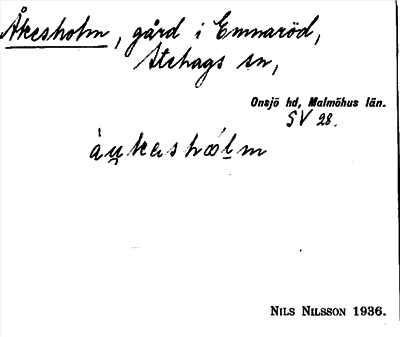 Åkesholm, gård i Emnaröd,
Stehags sn,
Onsjö hd, Malmöhus län.
SV 28.
àu̯kashól̠m
NILS NILSSON 1936.